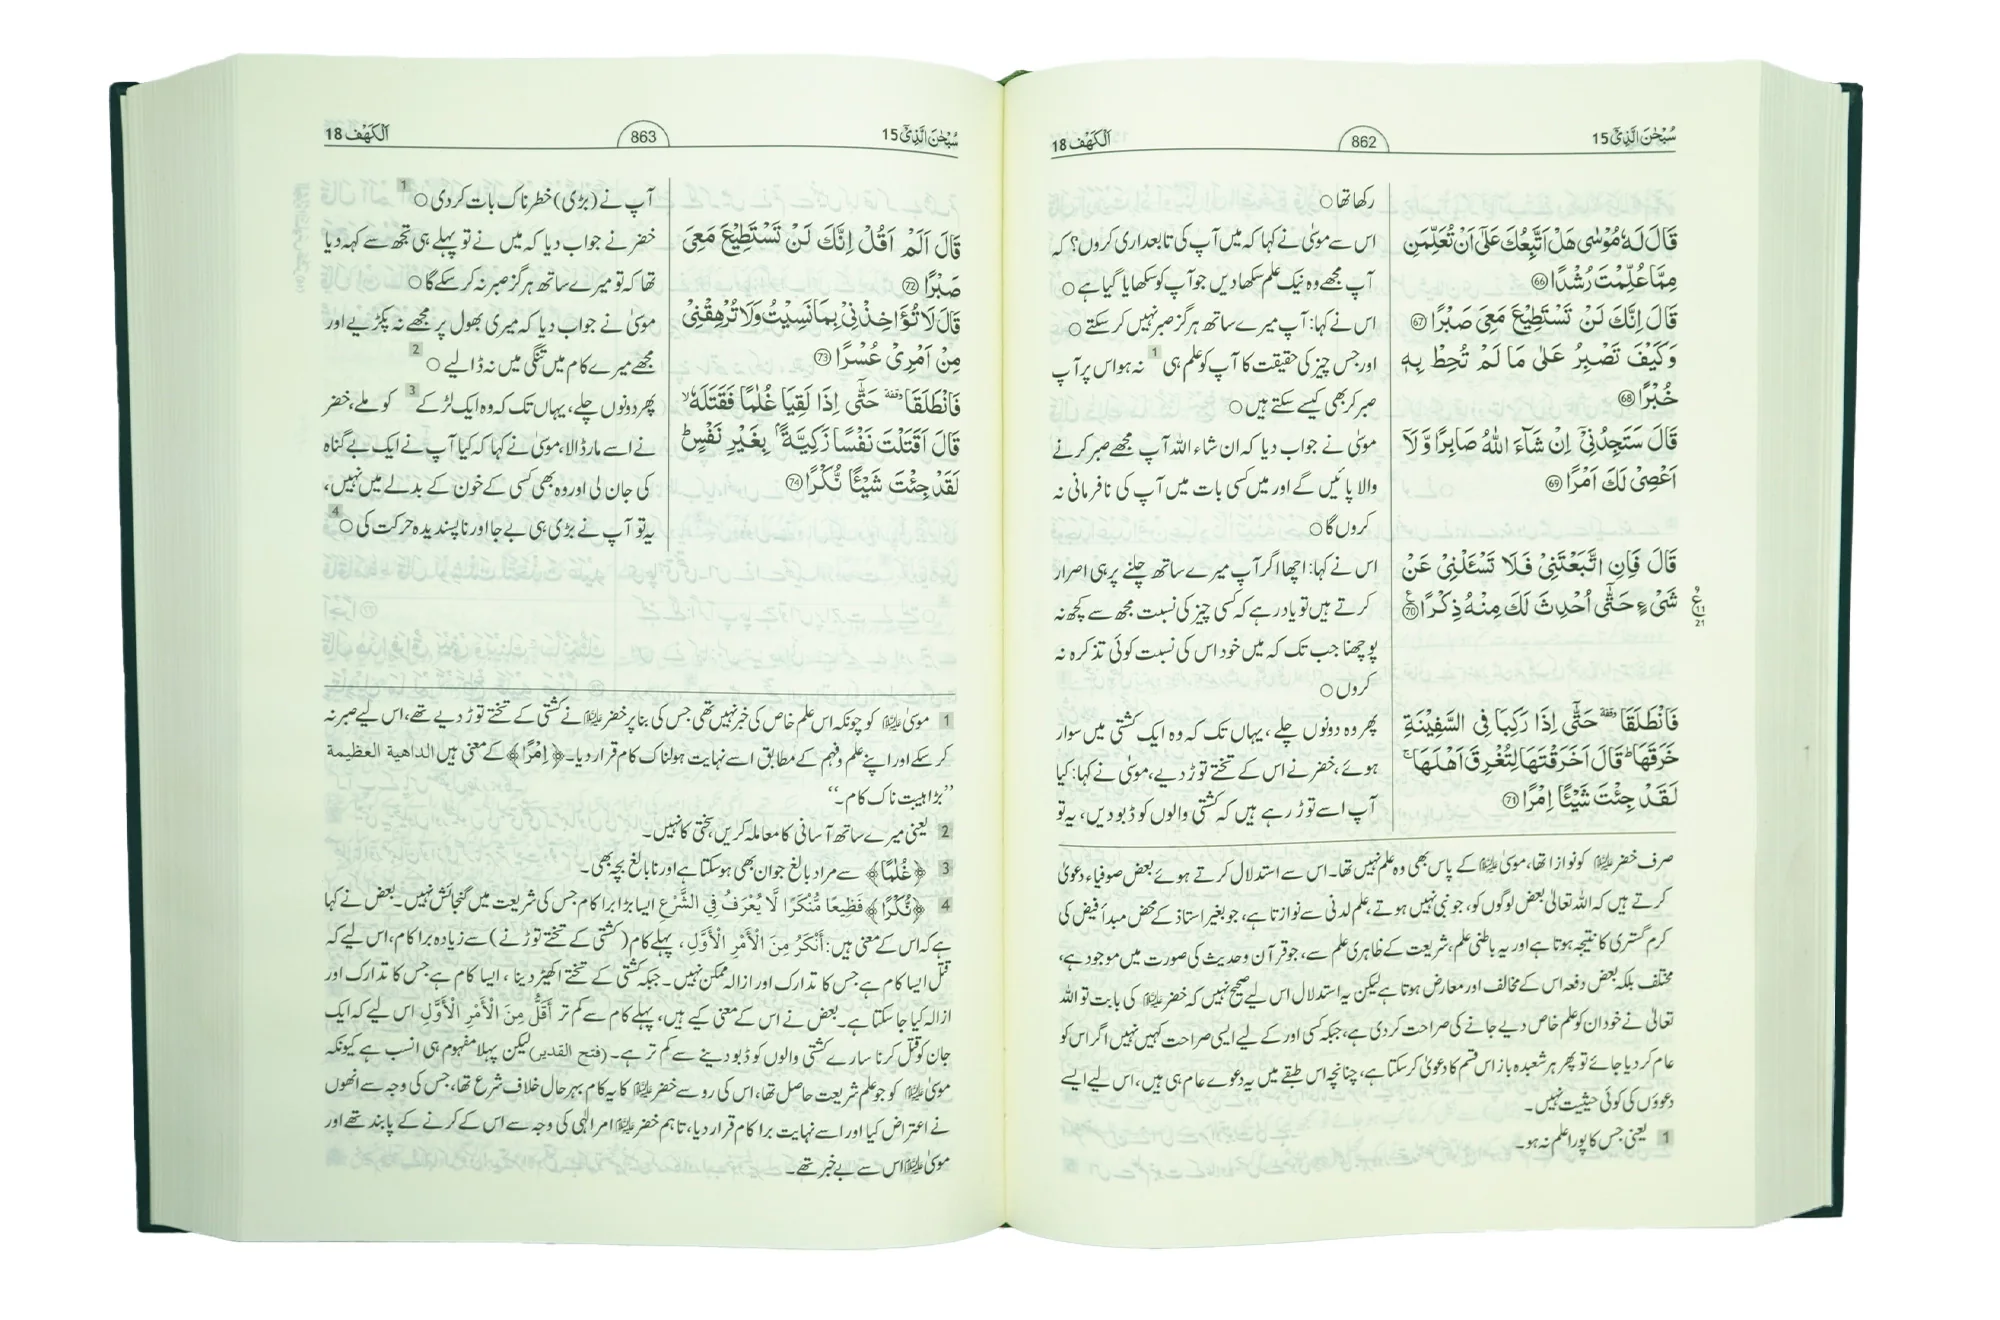 سُبْحٰنَ الَّذِیْۤ 15
862
اَلْکَهْف 18
قَالَ لَهٗ مُوْسٰى هَلْ اَتَّبِعُكَ عَلٰۤى اَنْ تُعَلِّمَنِ
مِمَّا عُلِّمْتَ رُشْدًا ﴿66﴾
قَالَ اِنَّكَ لَنْ تَسْتَطِيْعَ مَعِىَ صَبْرًا ﴿67﴾
وَكَيْفَ تَصْبِرُ عَلٰى مَا لَمْ تُحِطْ بِهٖ
خُبْرًا ﴿68﴾
قَالَ سَتَجِدُنِىْۤ اِنْ شَآءَ اللّٰهُ صَابِرًا وَّلَاۤ
اَعْصِىْ لَكَ اَمْرًا ﴿69﴾
قَالَ فَاِنِ اتَّبَعْتَنِىْ فَلَا تَسْـَٔلْنِىْ عَنْ
شَىْءٍ حَتّٰۤى اُحْدِثَ لَكَ مِنْهُ ذِكْرًا ﴿70﴾
ع 11 21
فَانْطَلَقَا حَتّٰۤى اِذَا رَكِبَا فِى السَّفِيْنَةِ
خَرَقَهَا ؕ قَالَ اَخَرَقْتَهَا لِتُغْرِقَ اَهْلَهَا ۚ
لَقَدْ جِئْتَ شَيْـًٔا اِمْرًا ﴿71﴾
رکھا تھا ○
اس سے موسیٰ نے کہا کہ میں آپ کی تابعداری کروں؟ کہ
آپ مجھے وہ نیک علم سکھا دیں جو آپ کو سکھایا گیا ہے ○
اس نے کہا: آپ میرے ساتھ ہرگز صبر نہیں کر سکتے ○
اور جس چیز کی حقیقت کا آپ کو علم ہی 1 نہ ہو اس پر آپ
صبر کر بھی کیسے سکتے ہیں ○
موسیٰ نے جواب دیا کہ ان شاء اللہ آپ مجھے صبر کرنے
والا پائیں گے اور میں کسی بات میں آپ کی نافرمانی نہ
کروں گا ○
اس نے کہا: اچھا اگر آپ میرے ساتھ چلنے پر ہی اصرار
کرتے ہیں تو یاد رہے کہ کسی چیز کی نسبت مجھ سے کچھ نہ
پوچھنا جب تک کہ میں خود اس کی نسبت کوئی تذکرہ نہ
کروں ○
پھر وہ دونوں چلے، یہاں تک کہ وہ ایک کشتی میں سوار
ہوئے، خضر نے اس کے تختے توڑ دیے، موسیٰ نے کہا: کیا
آپ اسے توڑ رہے ہیں کہ کشتی والوں کو ڈبو دیں، یہ تو
صرف خضر علیہ السلام کو نوازا تھا، موسیٰ علیہ السلام کے پاس بھی وہ علم نہیں تھا۔ اس سے استدلال کرتے ہوئے بعض صوفیاء دعویٰ
کرتے ہیں کہ اللہ تعالیٰ بعض لوگوں کو، جو نبی نہیں ہوتے، علم لدنی سے نوازتا ہے، جو بغیر استاذ کے محض مبدأ فیض کی
کرم گستری کا نتیجہ ہوتا ہے اور یہ باطنی علم، شریعت کے ظاہری علم سے، جو قرآن و حدیث کی صورت میں موجود ہے،
مختلف بلکہ بعض دفعہ اس کے مخالف اور معارض ہوتا ہے لیکن یہ استدلال اس لیے صحیح نہیں کہ خضر علیہ السلام کی بابت تو اللہ
تعالیٰ نے خود ان کو علم خاص دیے جانے کی صراحت کر دی ہے، جبکہ کسی اور کے لیے ایسی صراحت کہیں نہیں اگر اس کو
عام کر دیا جائے تو پھر ہر شعبدہ باز اس قسم کا دعویٰ کر سکتا ہے، چنانچہ اس طبقے میں یہ دعوے عام ہی ہیں، اس لیے ایسے
دعوؤں کی کوئی حیثیت نہیں۔
1 یعنی جس کا پورا علم نہ ہو۔
سُبْحٰنَ الَّذِیْۤ 15
863
اَلْکَهْف 18
قَالَ اَلَمْ اَقُلْ اِنَّكَ لَنْ تَسْتَطِيْعَ مَعِىَ
صَبْرًا ﴿72﴾
قَالَ لَا تُؤَاخِذْنِىْ بِمَا نَسِيْتُ وَلَا تُرْهِقْنِىْ
مِنْ اَمْرِىْ عُسْرًا ﴿73﴾
فَانْطَلَقَا حَتّٰۤى اِذَا لَقِيَا غُلٰمًا فَقَتَلَهٗ ۙ
قَالَ اَقَتَلْتَ نَفْسًا زَكِيَّةًۢ بِغَيْرِ نَفْسٍ ؕ
لَقَدْ جِئْتَ شَيْـًٔا نُّكْرًا ﴿74﴾
آپ نے (بڑی) خطرناک بات کر دی ○ 1
خضر نے جواب دیا کہ میں نے تو پہلے ہی تجھ سے کہہ دیا
تھا کہ تو میرے ساتھ ہرگز صبر نہ کر سکے گا ○
موسیٰ نے جواب دیا کہ میری بھول پر مجھے نہ پکڑیے اور
مجھے میرے کام میں تنگی میں نہ ڈالیے ○ 2
پھر دونوں چلے، یہاں تک کہ وہ ایک لڑکے 3 کو ملے، خضر
نے اسے مار ڈالا، موسیٰ نے کہا کہ کیا آپ نے ایک بے گناہ
کی جان لی اور وہ بھی کسی کے خون کے بدلے میں نہیں،
یہ تو آپ نے بڑی ہی بے جا اور ناپسندیدہ حرکت کی ○ 4
1 موسیٰ علیہ السلام کو چونکہ اس علم خاص کی خبر نہیں تھی جس کی بنا پر خضر علیہ السلام نے کشتی کے تختے توڑ دیے تھے، اس لیے صبر نہ
کر سکے اور اپنے علم و فہم کے مطابق اسے نہایت ہولناک کام قرار دیا۔ ﴿اِمْرًا﴾ کے معنی ہیں الداهية العظيمة
’’بڑا ہیبت ناک کام۔‘‘
2 یعنی میرے ساتھ آسانی کا معاملہ کریں، سختی کا نہیں۔
3 ﴿غُلٰمًا﴾ سے مراد بالغ جوان بھی ہو سکتا ہے اور نابالغ بچہ بھی۔
4 ﴿نُّكْرًا﴾ فَظِيعًا مُّنْكَرًا لَّا يُعْرَفُ فِي الشَّرْعِ ایسا بڑا برا کام جس کی شریعت میں گنجائش نہیں۔ بعض نے کہا
ہے کہ اس کے معنی ہیں: أَنْكَرُ مِنَ الْأَمْرِ الْأَوَّلِ، پہلے کام (کشتی کے تختے توڑنے) سے زیادہ برا کام، اس لیے کہ
قتل ایسا کام ہے جس کا تدارک اور ازالہ ممکن نہیں۔ جبکہ کشتی کے تختے اکھیڑ دینا، ایسا کام ہے جس کا تدارک اور
ازالہ کیا جا سکتا ہے۔ بعض نے اس کے معنی کیے ہیں، پہلے کام سے کم تر أَقَلُّ مِنَ الْأَمْرِ الْأَوَّلِ اس لیے کہ ایک
جان کو قتل کرنا سارے کشتی والوں کو ڈبو دینے سے کم تر ہے۔ (فتح القدير) لیکن پہلا مفہوم ہی انسب ہے کیونکہ
موسیٰ علیہ السلام کو جو علم شریعت حاصل تھا، اس کی رو سے خضر علیہ السلام کا یہ کام بہرحال خلاف شرع تھا، جس کی وجہ سے انھوں
نے اعتراض کیا اور اسے نہایت برا کام قرار دیا، تاہم خضر علیہ السلام امر الٰہی کی وجہ سے اس کے کرنے کے پابند تھے اور
موسیٰ علیہ السلام اس سے بے خبر تھے۔